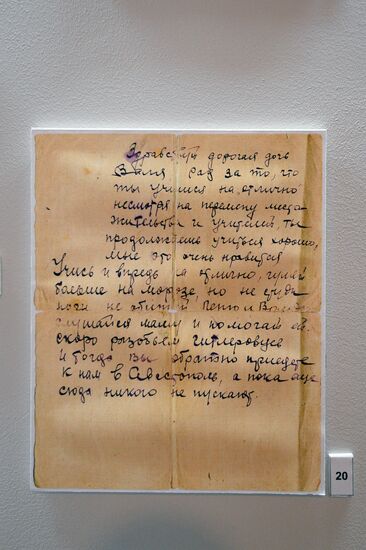 Здравствуй дорогая дочь
Валя. Рад за то, что
ты учишся на отлично
несмотря на перемену места
жительства и учителей, ты
продолжаешь учиться хорошо,
мне это очень нравится
Учись и впредь на отлично, гуляй
больше на морозе, но не
не обижай и
слушайся маму и помогай ей.
скоро разобьем гитлеровцев
и тогда вы обратно приедете
к нам в Севастополь, а пока еще
сюда никого не пускают.
20